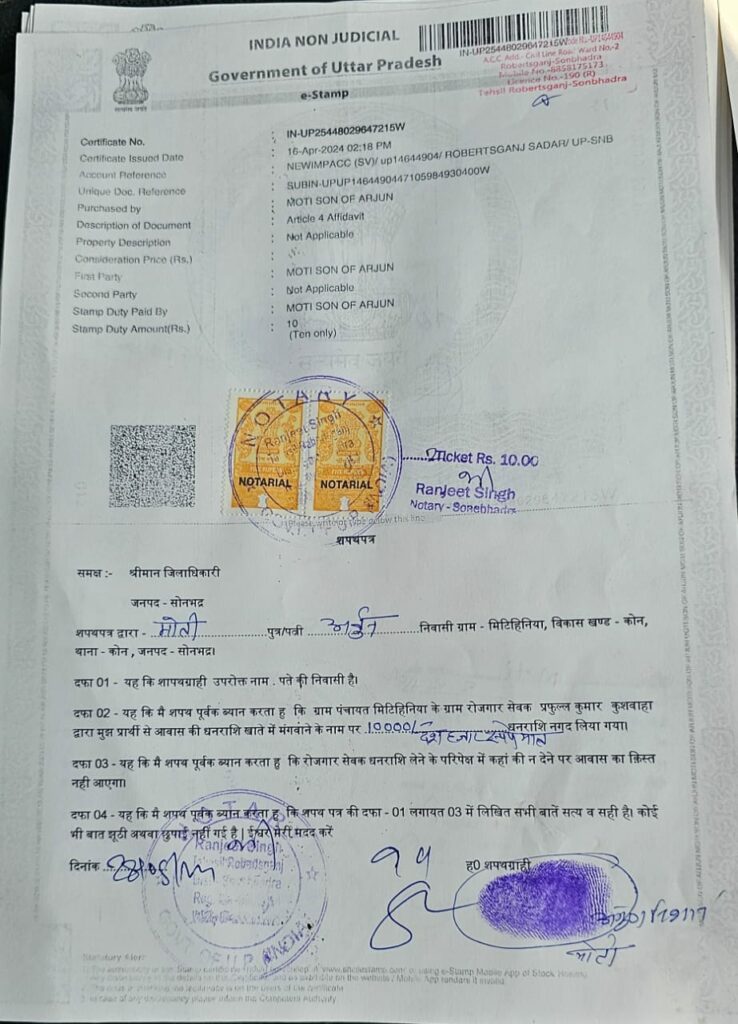 INDIA NON JUDICIAL
IN-UP25448029647215W
Government of Uttar Pradesh
e-Stamp
A.C.C. Add.- Civil Line Road Ward No.-2
Robertsganj-Sonbhadra
Mobile No.-8858175173
Licence No.-190 (R)
Tehsil Robertsganj-Sonbhadra
Certificate No. : IN-UP25448029647215W
Certificate Issued Date : 16-Apr-2024 02:18 PM
Account Reference : NEWIMPACC (SV)/ up14644904/ ROBERTSGANJ SADAR/ UP-SNB
Unique Doc. Reference : SUBIN-UPUP1464490447105984930400W
Purchased by : MOTI SON OF ARJUN
Description of Document : Article 4 Affidavit
Property Description : Not Applicable
Consideration Price (Rs.) :
First Party : MOTI SON OF ARJUN
Second Party : Not Applicable
Stamp Duty Paid By : MOTI SON OF ARJUN
Stamp Duty Amount(Rs.) : 10
(Ten only)
NOTARY
Ranjeet Singh
NOTARIAL NOTARIAL
2Ticket Rs. 10.00
Ranjeet Singh
Notary - Sonebhadra
Please write or type below this line
शपथपत्र
समक्ष :- श्रीमान जिलाधिकारी
जनपद - सोनभद्र
शपथपत्र द्वारा - मोती पुत्र/पत्नी अर्जुन निवासी ग्राम - मिटिहिनिया, विकास खण्ड - कोन,
थाना - कोन , जनपद - सोनभद्र।
दफा 01 - यह कि शापथग्राही उपरोक्त नाम . पते की निवासी है।
दफा 02 - यह कि मै शपथ पूर्वक ब्यान करता हु कि ग्राम पंचायत मिटिहिनिया के ग्राम रोजगार सेवक प्रफुल्ल कुमार कुशवाहा
द्वारा मुझ प्रार्थी से आवास की धनराशि खाते में मंगवाने के नाम पर 10000/ धनराशि नगद लिया गया।
दफा 03 - यह कि मै शपथ पूर्वक ब्यान करता हु कि रोजगार सेवक धनराशि लेने के परिपेक्ष में कहां की न देने पर आवास का क़िस्त
नही आएगा।
दफा 04 - यह कि मै शपथ पूर्वक ब्यान करता हु कि शपथ पत्र की दफा - 01 लगायत 03 में लिखित सभी बातें सत्य व सही है। कोई
भी बात झूठी अथवा छुपाई नहीं गई है। ईश्वर मेरी मदद करें
दिनांक
ह0 शपथग्राही
मोती
NOTARY
Ranjeet Singh
GOVT. OF U.P. INDIA
Statutory Alert: